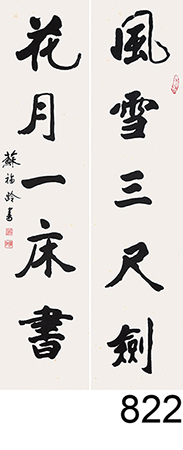 風雪三尺劍
花月一床書
蘇福齡書
822